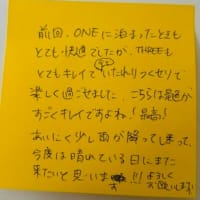 前回、ONEに泊まったときも
とても快適でしたが、THREEも
とてもキレイでいたれりつくせりで
楽しく過ごせました。こちらは景色が
すごくキレイですよね！最高！
あいにく少し雨が降ってしまって、
今度は晴れている日にまた
来たいと思います!!! よろしく
お願いします